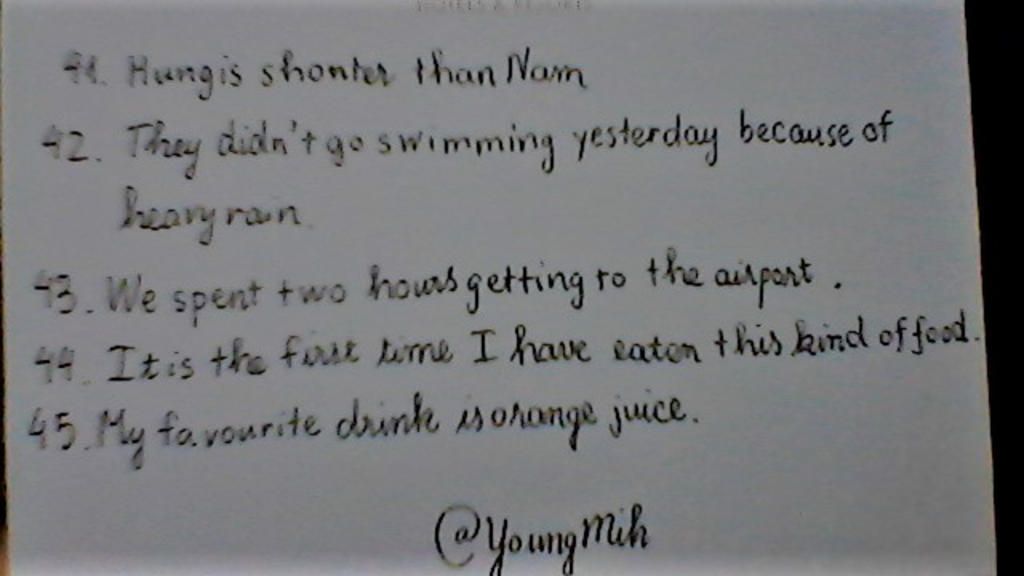 HOTELS & RESORTS
41. Hung is shorter than Nam
42. They didn't go swimming yesterday because of
heavy rain.
43. We spent two hours getting to the airport.
44. It is the first time I have eaten this kind of food.
45. My favourite drink is orange juice.
@YoungMih